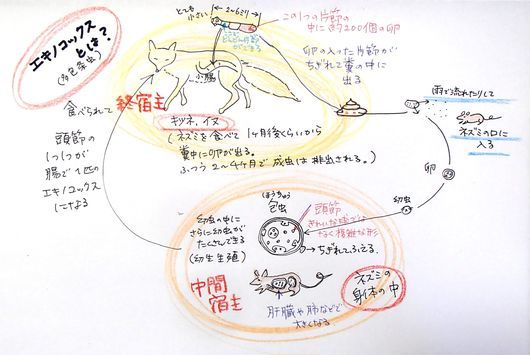 エキノコックス
とは?
(多包条虫)
とても
小さい
2~6ミリ
この1つの片節の
中に約200個の卵
卵の入った片節が
ちぎれて糞の中に
出る
小腸
食べられて
終宿主
キツネ、イヌ
(ネズミを食べて1ヶ月後くらいから
糞中に卵が出る。
ふつう2~4ヶ月で成虫は排出される。)
雨で流れたりして
ネズミの口に
入る
卵
幼虫
頭節の
1つ1つが
腸で1匹の
エキノコックス
になる
幼虫の中に
さらに幼虫が
たくさんできる
(幼生生殖)
ほうちゅう
包虫
頭節
きれいな球でな
なく複雑な形
ちぎれてふえる
中間
宿主
ネズミの
身体の中
肝臓や肺などで
大きくなる